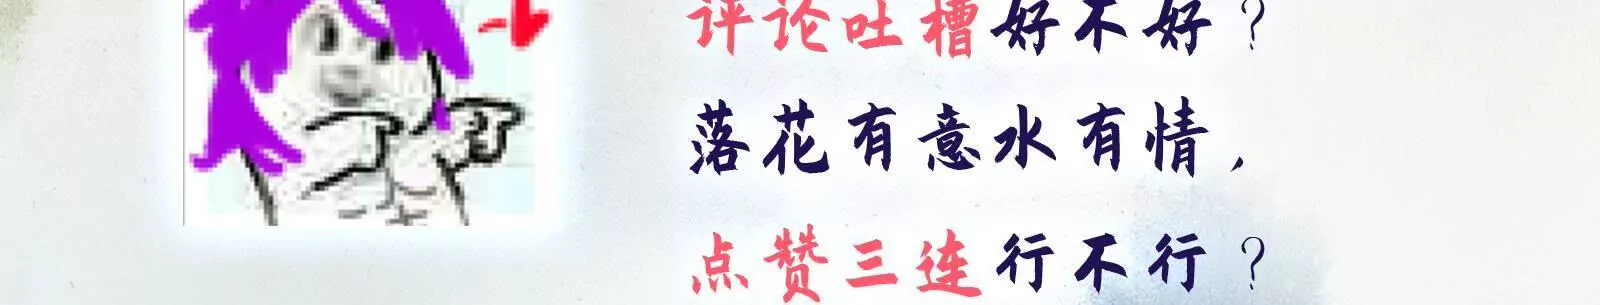 评论吐槽好不好？
落花有意水有情，
点赞三连行不行？